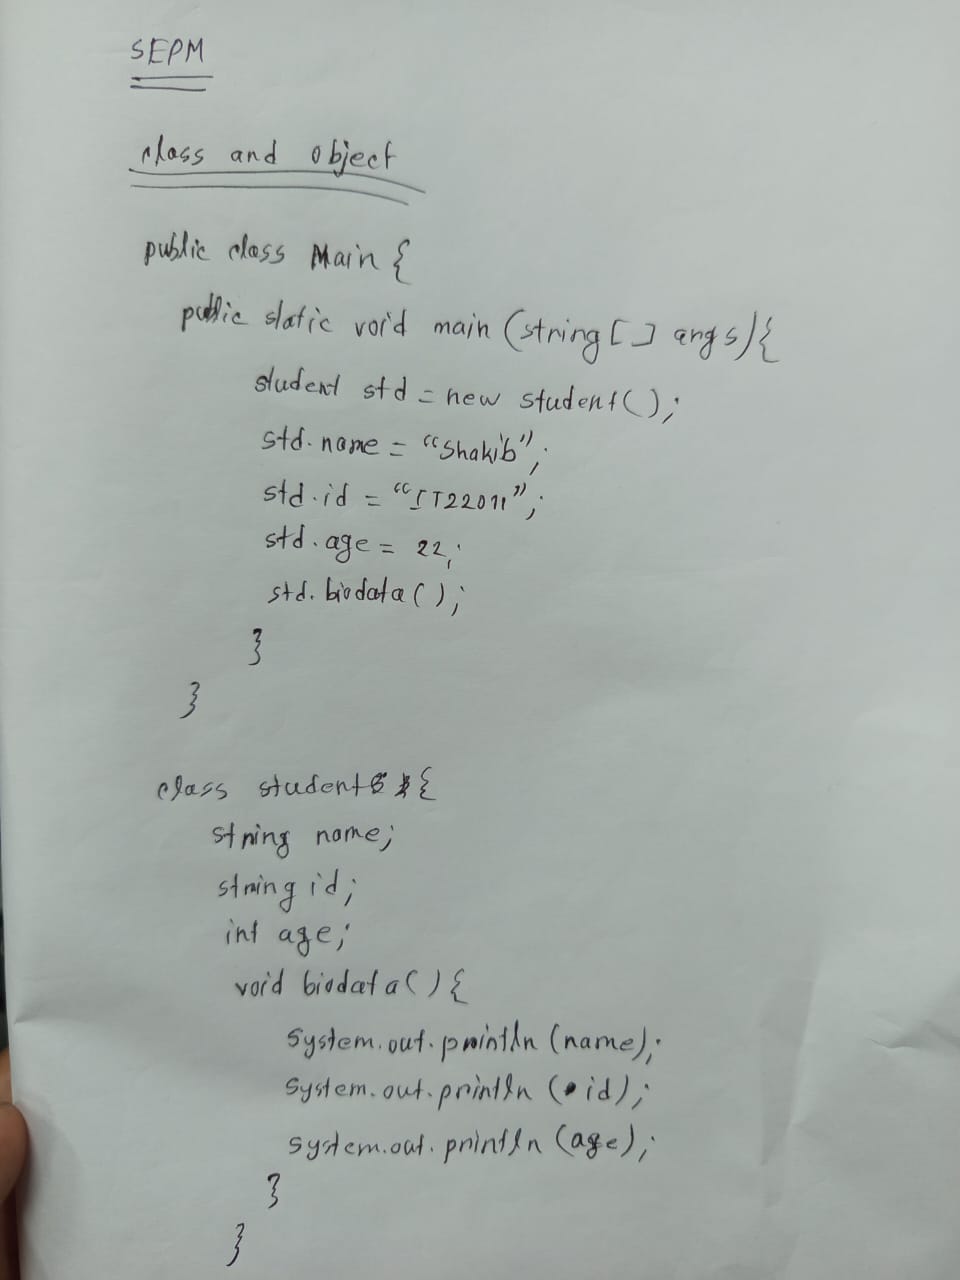 SEPM
class and object
public class Main {
public static void main (string [ ] args) {
student std = new student ( ) ;
std. name = "Shakib" ;
std. id = "IT22011" ;
std. age = 22 ;
std. biodata ( ) ;
}
}
class student {
string name ;
string id ;
int age ;
void biodata ( ) {
System. out. println (name) ;
System. out. println ( id ) ;
system. out. println (age) ;
}
}